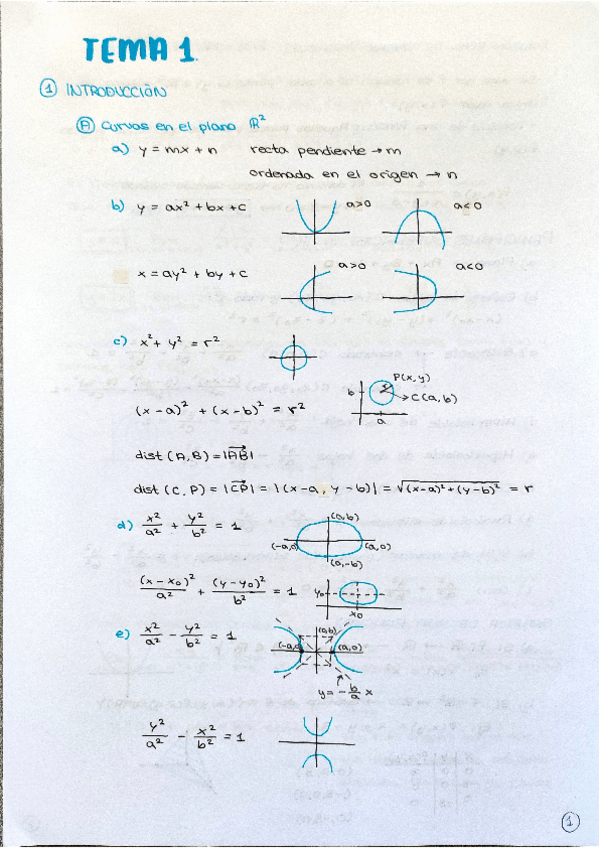 TEMA 1.
① INTRODUCCIÓN
Ⓐ Curvas en el plano ℝ²
a) y = mx + n recta pendiente → m
ordenada en el origen → n
b) y = ax² + bx + c a>0 a<0
x = ay² + by + c a>0 a<0
c) x² + y² = r²
P(x,y)
b
C(a,b)
a
(x-a)² + (x-b)² = r²
dist (A,B) = |AB|
dist (C,P) = |CP| = |(x-a, y-b)| = √(x-a)² + (y-b)² = r
d) x²/a² + y²/b² = 1 (0,b)
(-a,0) (a,0)
(0,-b)
(x-x₀)²/a² + (y-y₀)²/b² = 1 y₀
x₀
e) x²/a² - y²/b² = 1 (a,b)
(-a,0) (a,0)
y = -b/a x
y²/a² - x²/b² = 1
1